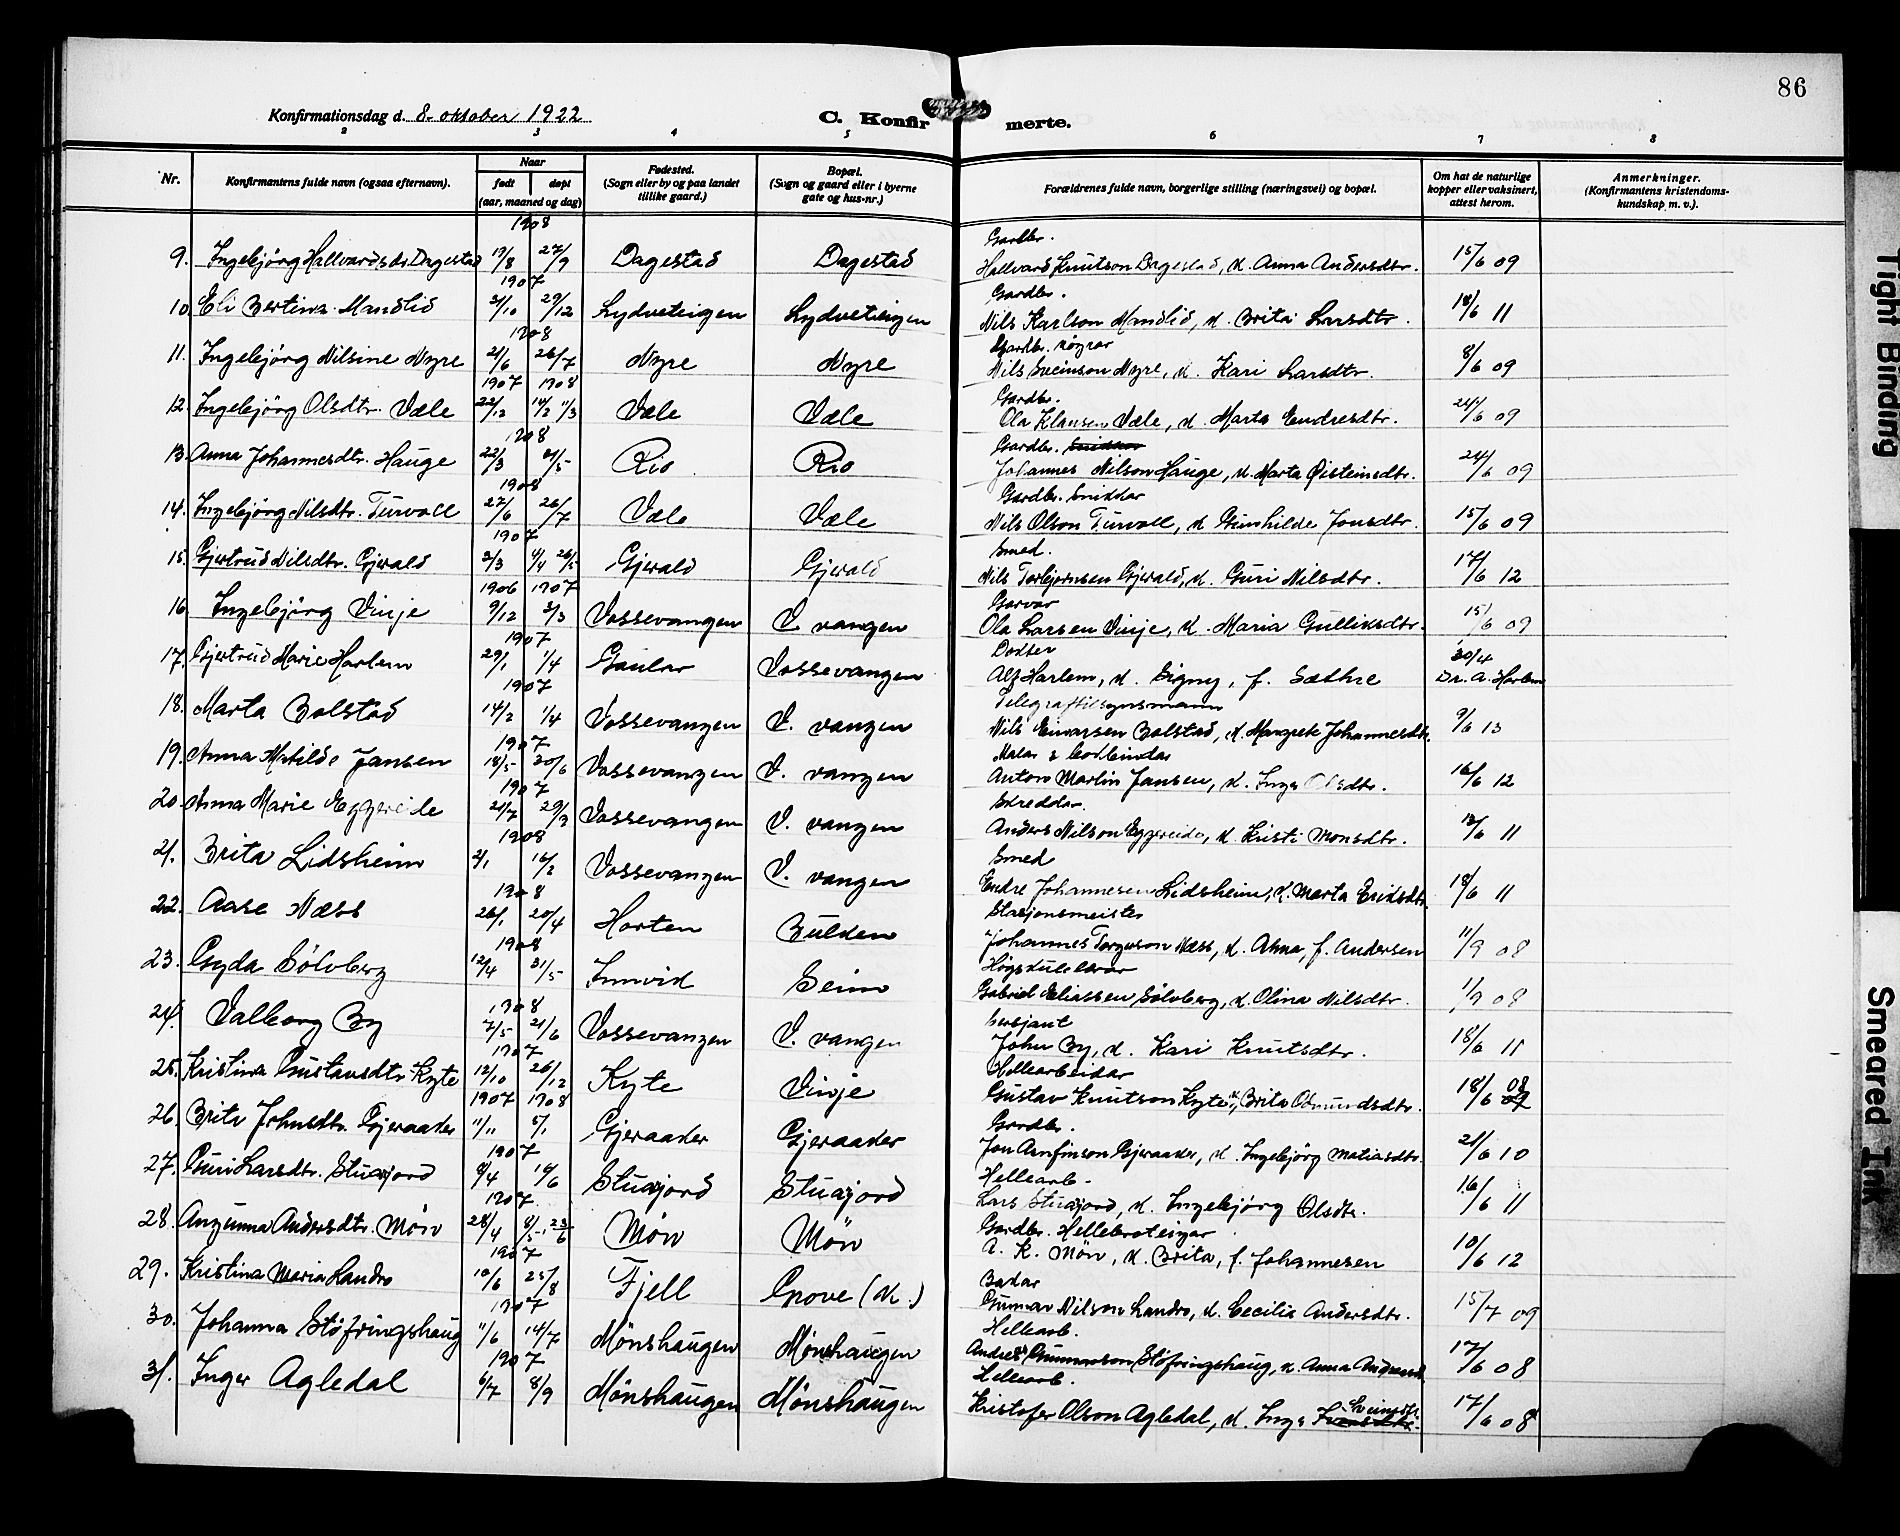 86
Konfirmationsdag d. 8. oktober 1922
C. Konfirmerte.
2 3 4 5 6 7 8
Nr.
Konfirmantens fulde navn (ogsaa efternavn).
Naar
født døpt
(aar, maaned og dag)
Fødested.
(Sogn eller by og paa landet
tillike gaard.)
Bopæl.
(Sogn og gaard eller i byerne
gate og hus-nr.)
Forældrenes fulde navn, borgerlige stilling (næringsvei) og bopæl.
Om hat de naturlige
kopper eller vaksinert,
attest herom.
Anmerkninger.
(Konfirmantens kristendoms-
kundskap m. v.).
1908 Gardbr.
9. Ingebjörg Hallvardsdr. Dagestad 19/8 27/9 Dagestad Dagestad Hallvard Knutson Dagestad, k. Anna Andersdtr. 15/6 09
1907 Gardbr.
10. Eli Bertina Mandlid 21/10 29/12 Lydveteigen Lydveteigen Nils Karlson Mandlid, k. Brita Larsdtr. 18/6 11
1908 Gardbr.
11. Ingebjörg Nilsine Nyre 21/6 26/7 Nyre Nyre Nils Sveinson Nyre, k. Kari Larsdtr. 8/6 09
1907 1908 Gardbr.
12. Ingebjörg Olsdtr. Væle 22/12 16/2 11/3 Væle Væle Ola Klausen Væle, k. Marta Endresdtr. 24/6 09
1908 Gardbr.
13. Anna Johannesdtr. Hauge 22/3 Rio Rio Johannes Nilson Hauge, k. Marta Øisteinsdtr. 24/6 09
1908 Gardbr. Snikkar
14. Ingebjörg Nilsdtr. Turvoll 27/6 26/7 Væle Væle Nils Olson Turvoll, k. Gunhilde Jonsdtr. 15/6 09
1907 Smed.
15. Gjertrud Nilsdtr. Gjerald 2/3 4/4 26/5 Gjerald Gjerald Nils Torbjörnsen Gjerald, k. Guri Nilsdtr. 17/6 12
1906 1907 Garvar
16. Ingebjörg Vinje 9/12 3/3 Vossevangen V. vangen Ola Larsen Vinje, k. Maria Gulliksdtr. 15/6 09
1907 Doktor
17. Gjertrud Marie Harlem 29/1 1/4 Gaular Vossevangen Alf Harlem, k. Signy, f. Sæthre 30/4 Dr. A. Harlem
1907 Telegraftilsynsmann
18. Marta Bolstad 14/2 1/4 Vossevangen V. vangen Nils Eivarsen Bolstad, k. Margrete Johannesdtr. 9/6 13
1907 Malar & bokbindar
19. Anna Matilde Jansen 18/5 30/6 Vossevangen V. vangen Anton Martin Jansen, k. Inga Olsdtr. 16/6 12
1907 Skreddar.
20. Anna Marie Eggereide 21/7 29/9 Vossevangen V. vangen Anders Nilson Eggereide, k. Kristi Monsdtr. 18/6 11
1908 Smed
21. Brita Lidsheim 2/1 16/2 Vossevangen V. vangen Endre Johannesen Lidsheim, k. Marta Eriksdtr. 18/6 11
1908 Stasjonsmeister
22. Aase Næss 26/1 20/4 Horten Bulken Johannes Torgerson Næss, k. Alma, f. Andersen 11/9 08
1908 Högskulelærar
23. Gyda Sölvberg 12/4 31/5 Innvik Seim Gabriel Eliassen Sölvberg, k. Olina Nilsdtr. 1/9 08
1908 Sersjant
24. Valborg By 7/5 21/6 Vossevangen V. vangen John By, k. Kari Knutsdtr. 18/6 11
1907 Hellearbeidar
25. Kristina Gustavsdtr. Kyte 12/10 26/12 Kyte Vinje Gustav Knutson Kyte, k. Brita Odmundsdtr. 18/6 08
1907 1908 Gardbr.
26. Brita Johnsdtr. Gjeraaker 11/11 5/1 Gjeraaker Gjeraaker Jon Arnfinson Gjeraaker, k. Ingebjörg Matiasdtr. 21/6 10
1907 Hellearb.
27. Guri Larsdtr. Stuajord 8/4 16/6 Stuajord Stuajord Lars Stuajord, k. Ingebjörg Olsdtr. 16/6 11
1907 Gardbr. Hellebroteigar
28. Angunna Andersdtr. Mön 28/4 8/5 23/6 Mön Mön A. K. Mön, k. Brita, f. Johannesen 10/6 12
1907 Bakar
29. Kristina Maria Landro 10/6 25/8 Fjell Grove (K.) Gunnar Nilson Landro, k. Cecilia Andersdtr. 15/7 09
1907 Hellearb.
30. Johanna Stöfringshaug 11/6 14/7 Mönshaugen Mönshaugen Andres Gunnarson Stöfringshaug, k. Anna 17/6 08
1907 Hellearb.
31. Inger Agledal 6/7 8/9 Mönshaugen Mönshaugen Kristofer Olson Agledal, k. Inga Sveinsdtr. 17/6 08
Tight Binding
Smeared Ink